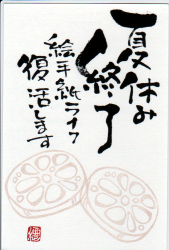 夏休み
終了
絵手紙ライフ
復活します